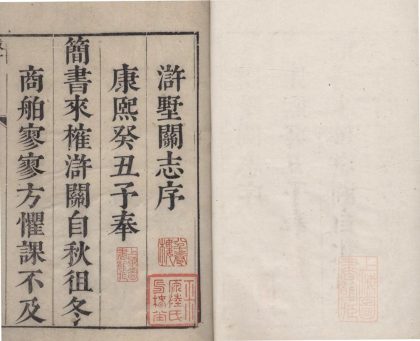 滸墅關志序
康熙癸丑予奉
簡書來榷滸關自秋徂冬
商舶寥寥方懼課不及